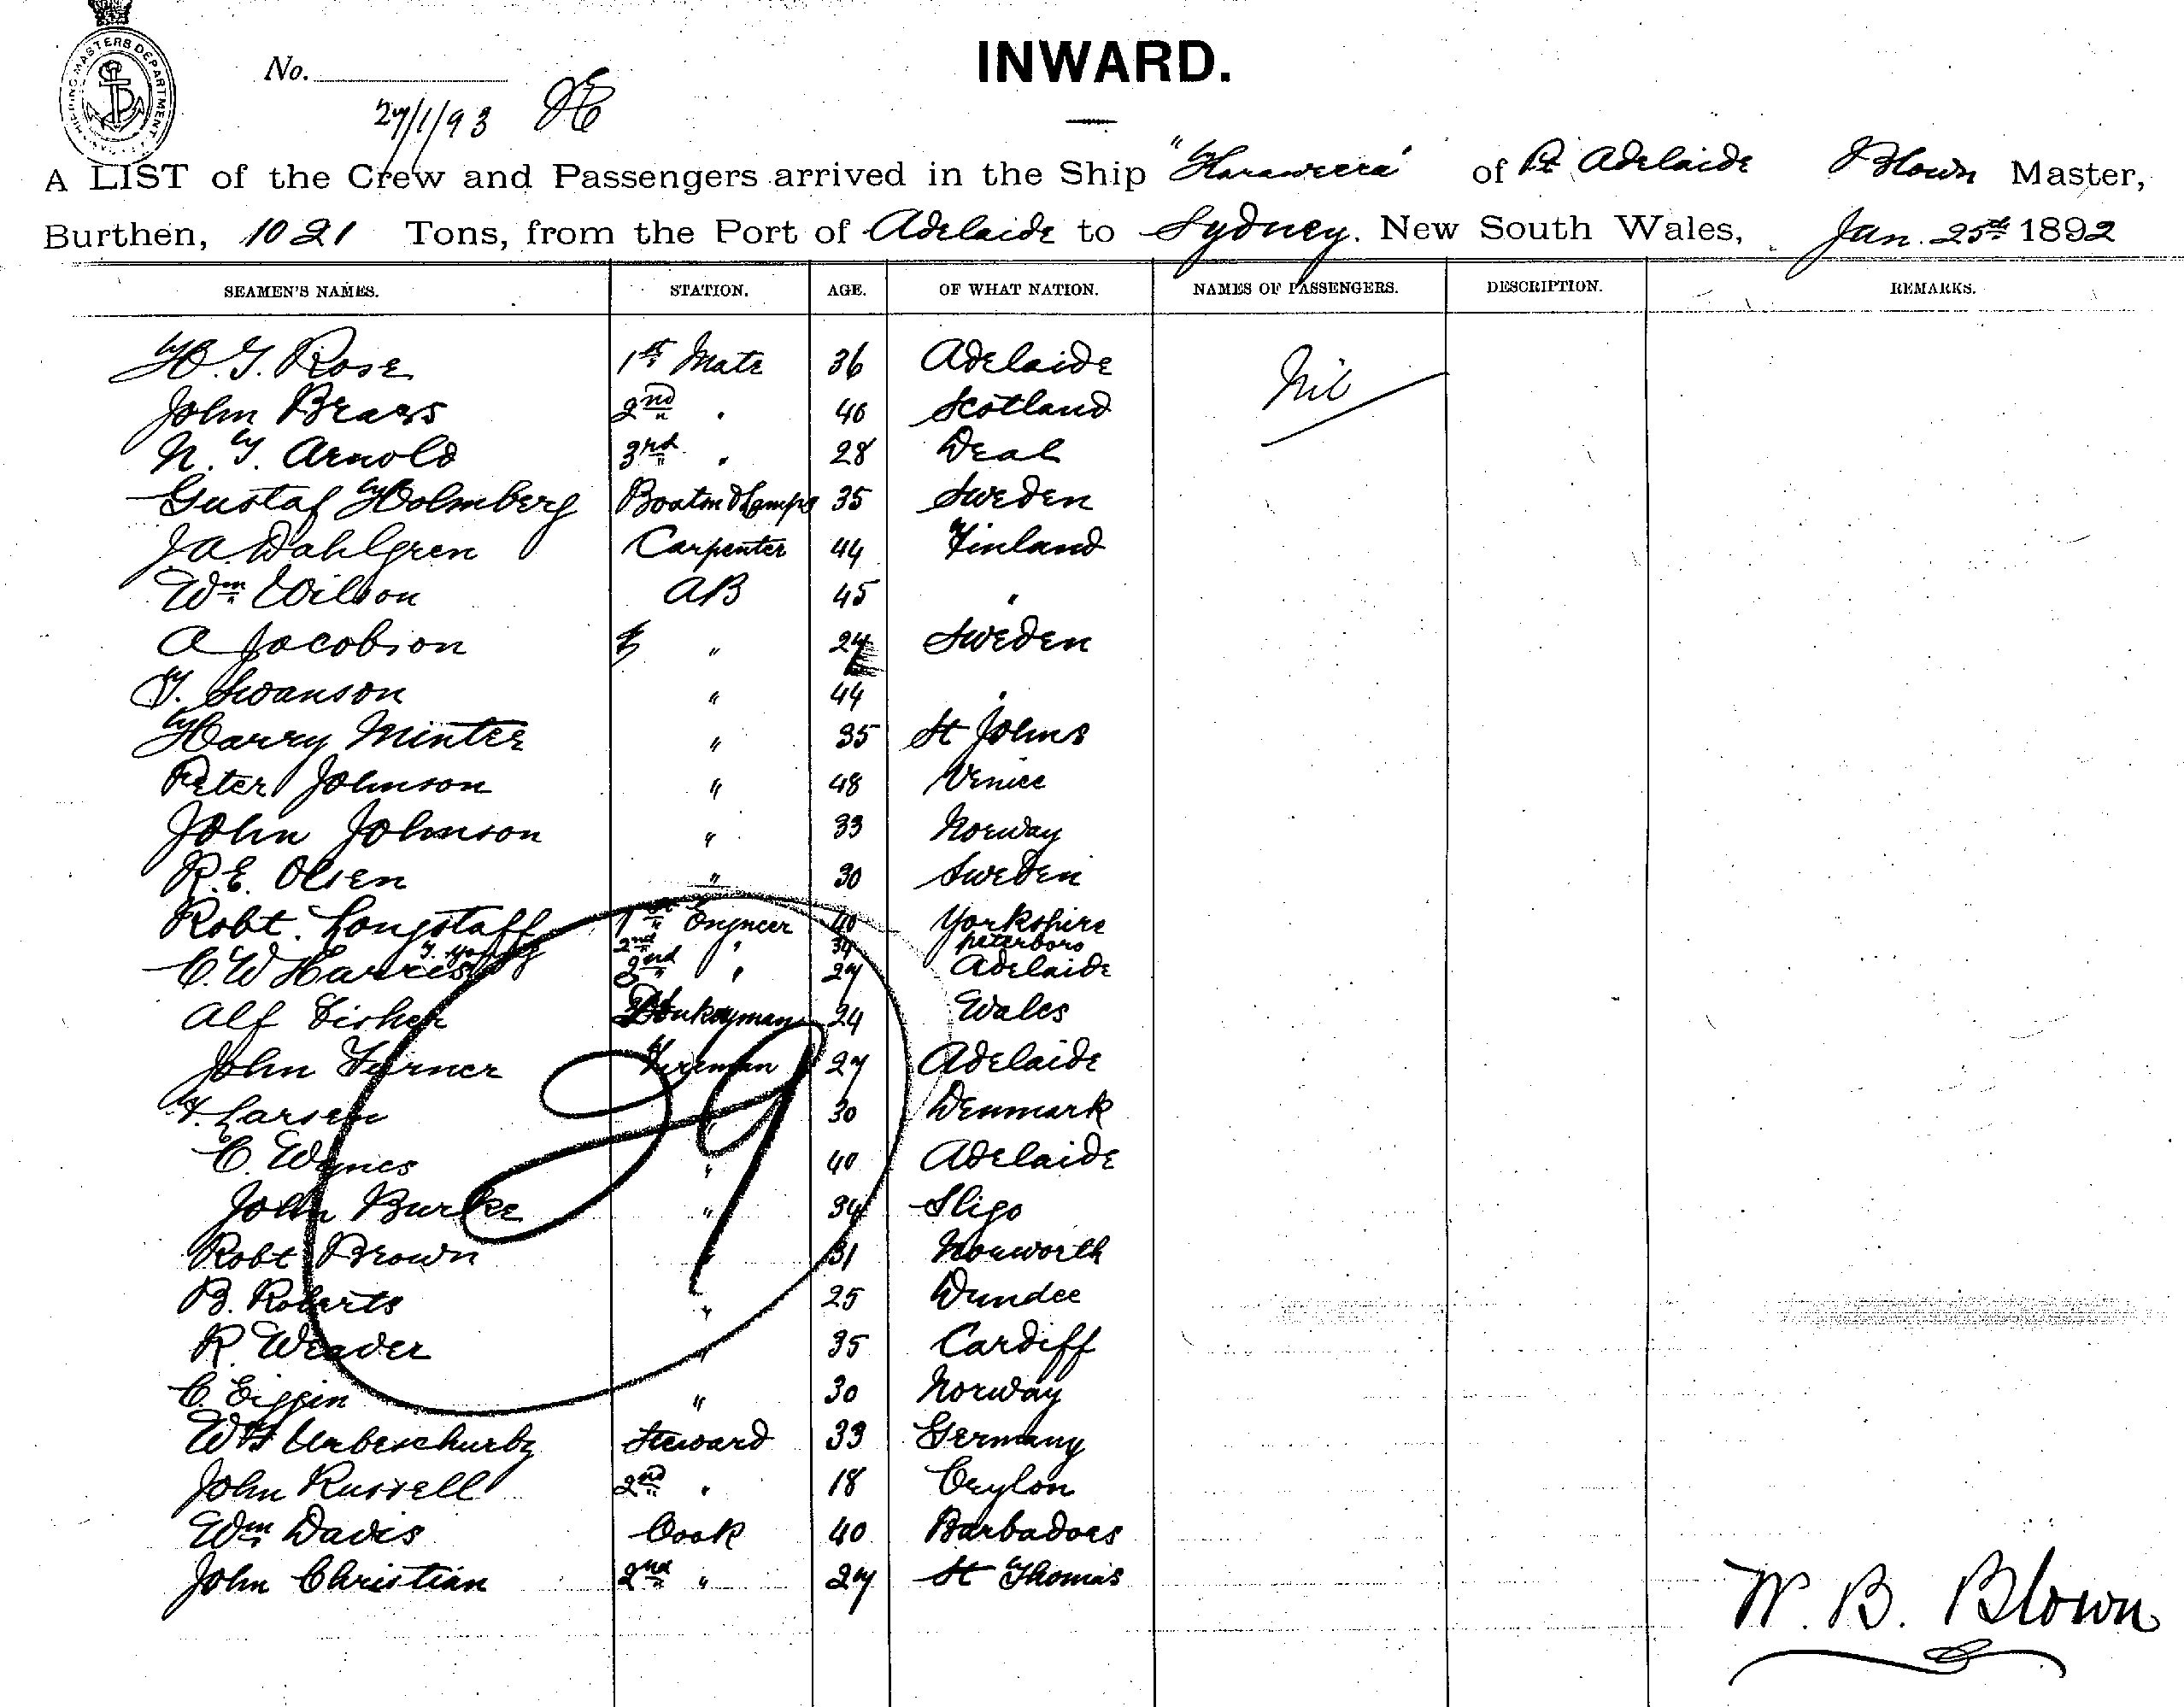 SHIPPING MASTERS DEPARTMENT
No.
INWARD.
27/1/93
A LIST of the Crew and Passengers arrived in the Ship "Tharaweera" of Pt Adelaide Blown Master,
Burthen, 1021 Tons, from the Port of Adelaide to Sydney. New South Wales, Jan. 25th 1892
SEAMEN'S NAMES. STATION. AGE. OF WHAT NATION. NAMES OF PASSENGERS. DESCRIPTION. REMARKS.
H. G. Rose 1st Mate 36 Adelaide Nil
John Brass 2nd " 40 Scotland
N. Y. Arnold 3rd " 28 Deal
Gustaf Holmberg Boatsn & Lamps 35 Sweden
J. A. Wahlgren Carpenter 44 Finland
Wm Wilson AB 45 "
A Jacobson " 24 Sweden
T. Swanson " 44 "
Harry Minter " 35 St Johns
Peter Johnson " 48 Venice
John Johnson " 33 Norway
R. E. Olsen " 30 Sweden
Robt. Longstaff 1st Engneer 40 Yorkshire
2nd " 34 peterboro
C. W Harris 3rd " 27 Adelaide
Alf Fisher Donkeyman 24 Wales
John Turner Fireman 27 Adelaide
H. Larsen " 30 Denmark
C. Wynes " 40 Adelaide
John Burke " 34 Sligo
Robt Brown " 31
B. Roberts " 25 Dundee
R. Weaver " 35 Cardiff
C. " 30 Norway
Steward 33 Germany
John Russell 2nd " 18 Ceylon
Wm Davis Cook 40 Barbadoes
John Christian 2nd " 27 St Thomas
29
W. B. Blown